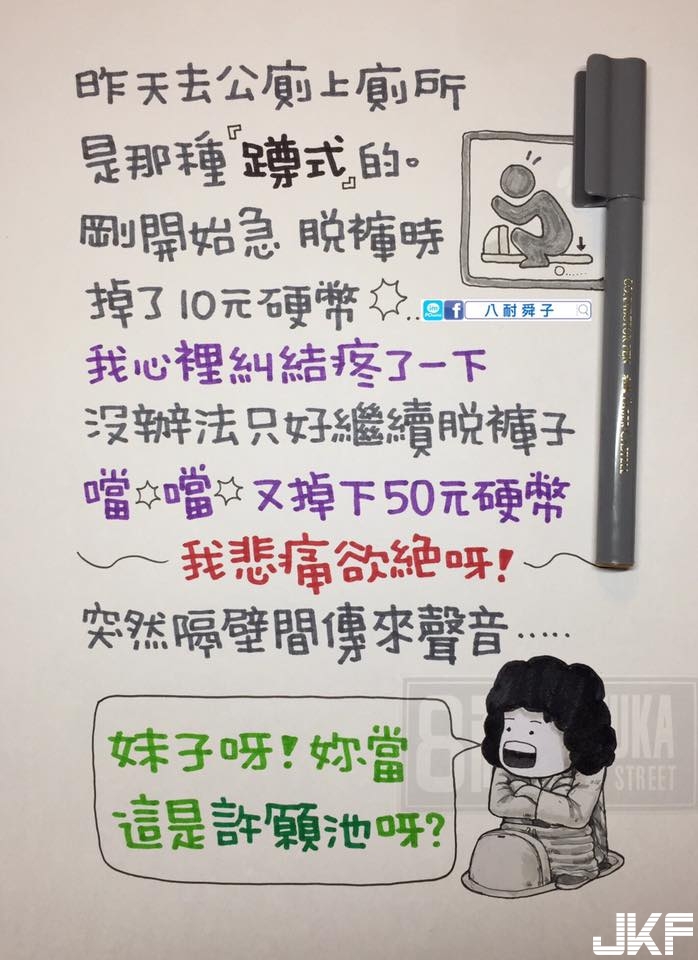 昨天去公廁上廁所
是那種『蹲式』的。
剛開始急 脫褲時
掉了10元硬幣..
八耐舜子
我心裡糾結疼了一下
沒辦法只好繼續脫褲子
噹 噹 又掉下50元硬幣
我悲痛欲絕呀!
突然隔壁間傳來聲音.....
妹子呀!妳當
這是許願池呀?
STREET
JKF